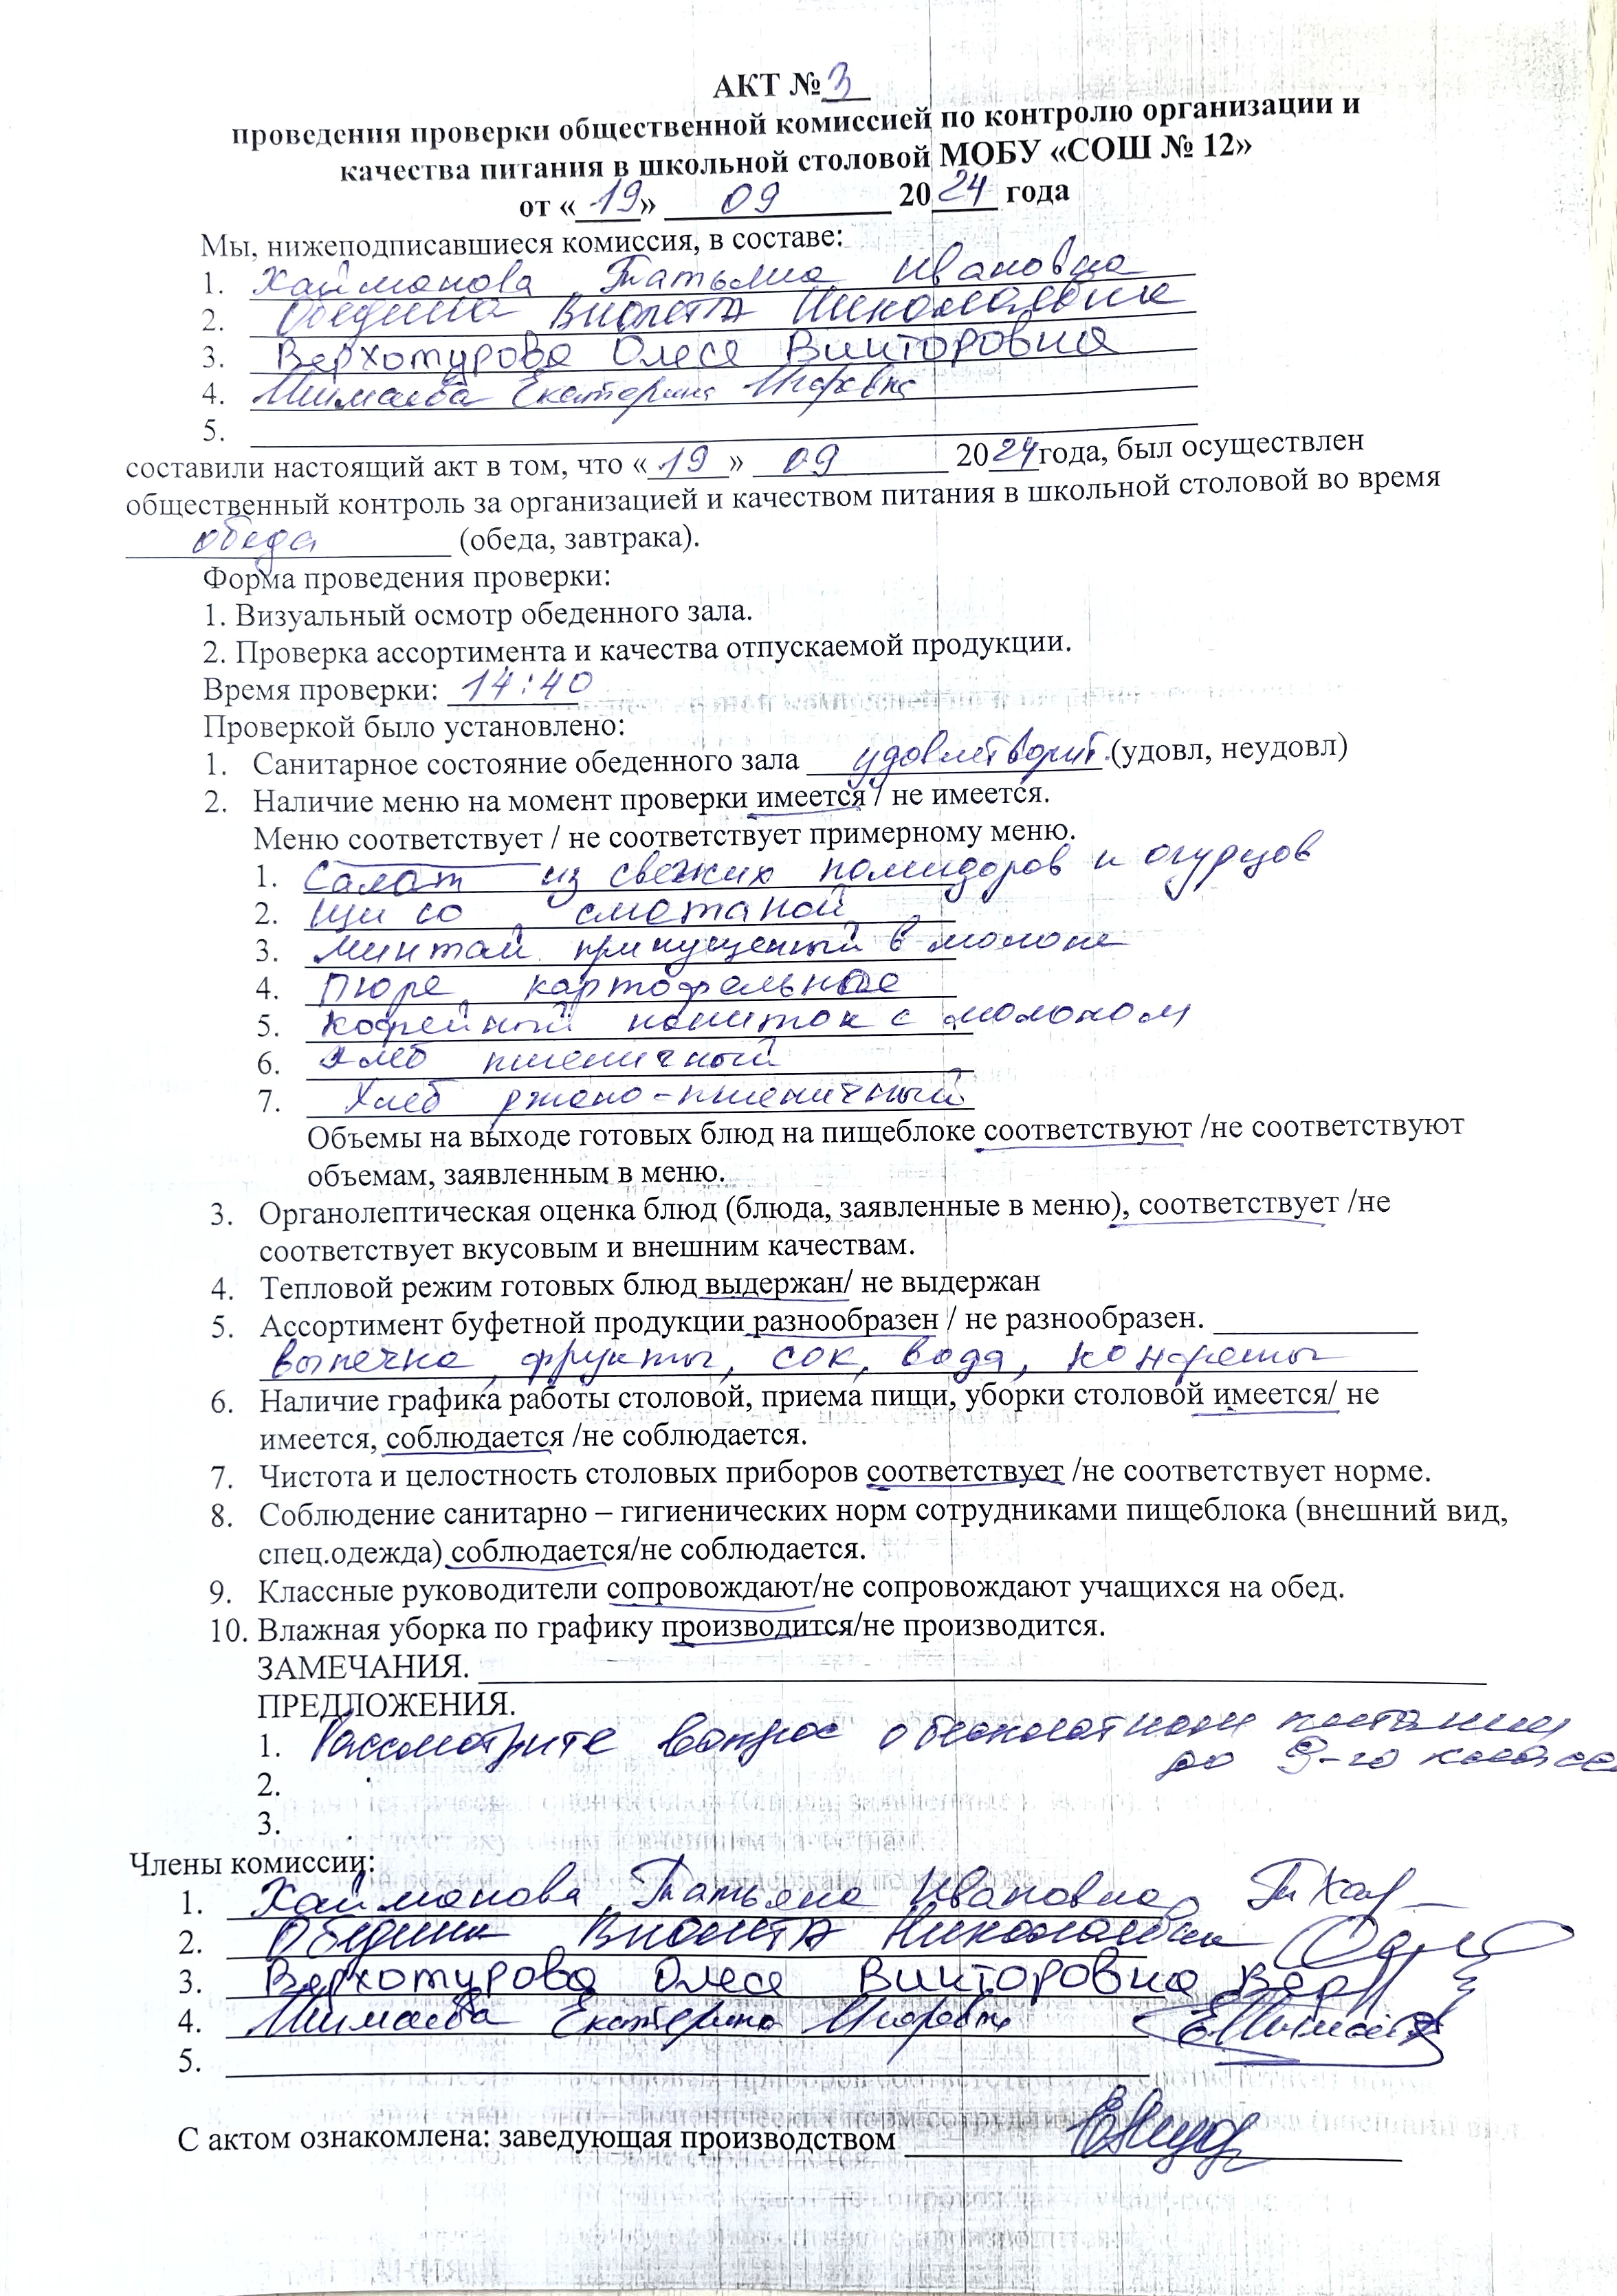 АКТ № 3
проведения проверки общественной комиссией по контролю организации и
качества питания в школьной столовой МОБУ «СОШ № 12»
от « 19 » 09 20 24 года
Мы, нижеподписавшиеся комиссия, в составе:
1. Хайманова Татьяна Ивановна
2. Обедина Виолетта Николаевна
3. Верхотурова Олеся Викторовна
4. Екатерина Игоревна
5.
составили настоящий акт в том, что « 19 » 09 20 24 года, был осуществлен
общественный контроль за организацией и качеством питания в школьной столовой во время
обеда (обеда, завтрака).
Форма проведения проверки:
1. Визуальный осмотр обеденного зала.
2. Проверка ассортимента и качества отпускаемой продукции.
Время проверки: 14:40
Проверкой было установлено:
1. Санитарное состояние обеденного зала удовлетворит. (удовл, неудовл)
2. Наличие меню на момент проверки имеется / не имеется.
Меню соответствует / не соответствует примерному меню.
1. Салат из свежих помидоров и огурцов
2. Щи со сметаной
3. Минтай припущенный в молоке
4. Пюре картофельное
5. Кофейный напиток с молоком
6. Хлеб пшеничный
7. Хлеб ржано-пшеничный
Объемы на выходе готовых блюд на пищеблоке соответствуют /не соответствуют
объемам, заявленным в меню.
3. Органолептическая оценка блюд (блюда, заявленные в меню), соответствует /не
соответствует вкусовым и внешним качествам.
4. Тепловой режим готовых блюд выдержан/ не выдержан
5. Ассортимент буфетной продукции разнообразен / не разнообразен.
выпечка, фрукты, сок, вода, конфеты
6. Наличие графика работы столовой, приема пищи, уборки столовой имеется/ не
имеется, соблюдается /не соблюдается.
7. Чистота и целостность столовых приборов соответствует /не соответствует норме.
8. Соблюдение санитарно – гигиенических норм сотрудниками пищеблока (внешний вид,
спец.одежда) соблюдается/не соблюдается.
9. Классные руководители сопровождают/не сопровождают учащихся на обед.
10. Влажная уборка по графику производится/не производится.
ЗАМЕЧАНИЯ.
ПРЕДЛОЖЕНИЯ.
1. Рассмотрите вопрос о бесплатном питании
до 9-го класса
2.
3.
Члены комиссии:
1. Хайманова Татьяна Ивановна
2. Обедина Виолетта Николаевна
3. Верхотурова Олеся Викторовна Вер
4. Екатерина Игоревна
5.
С актом ознакомлена: заведующая производством